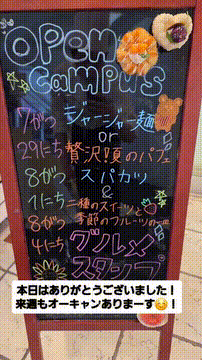 OPEN
CAMPUS
7がつ ジャージャー麺
or
29にち 贅沢苺のパフェ
8がつ スパカツ
1にち &
8がつ 二種のスイーツと
季節のフルーツの
4にち グルメ
スタンプ
本日はありがとうございました！
来週もオーキャンありまーす！